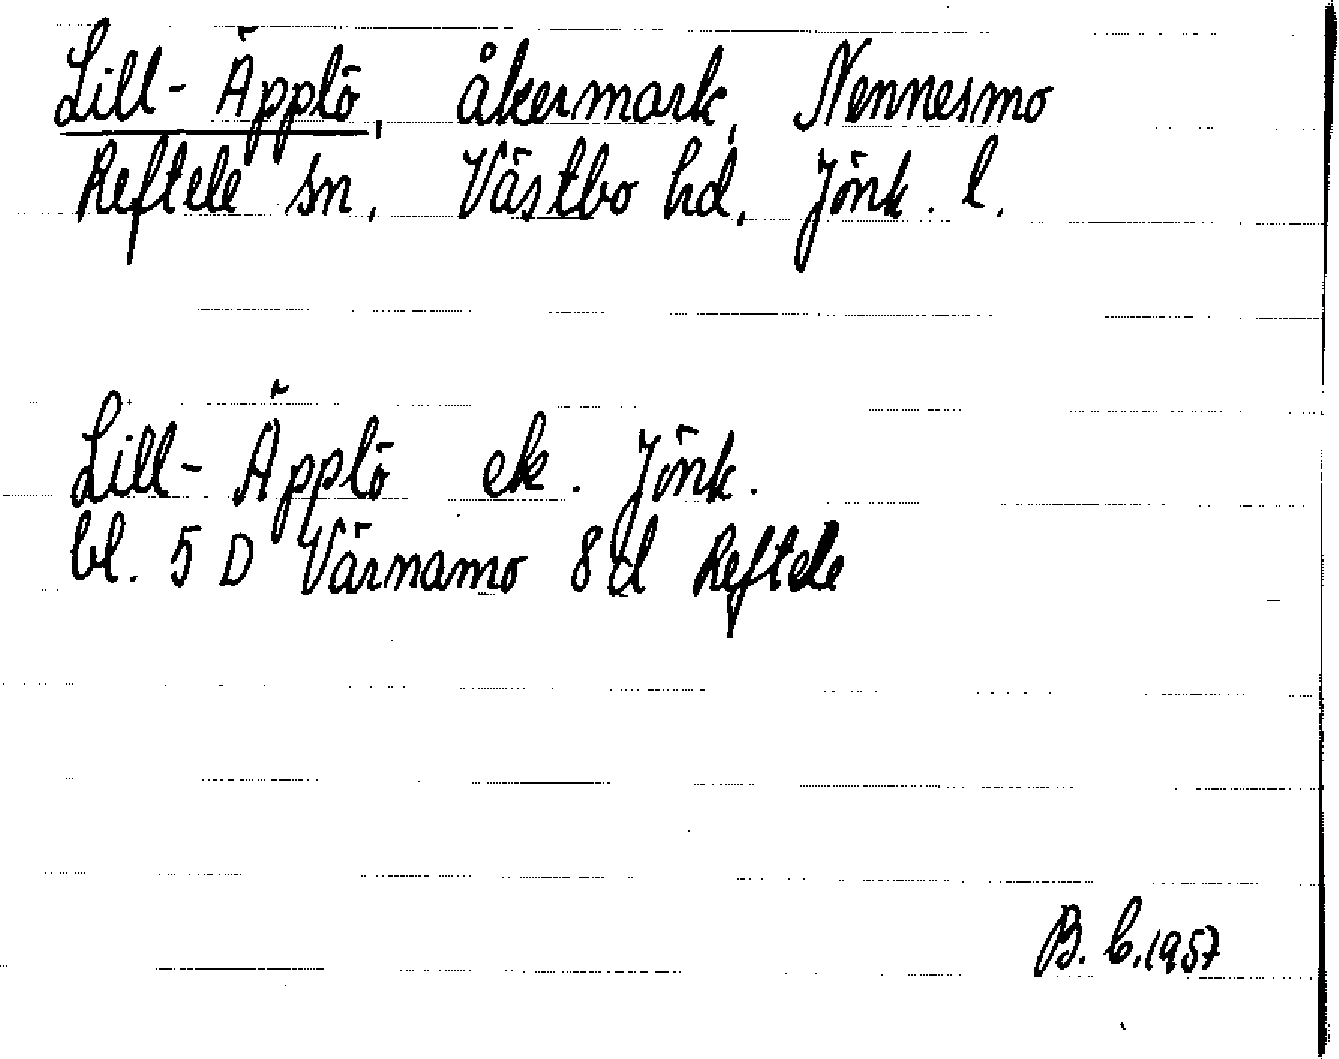 Lill-Äpplö, åkermark, Nennesmo
Reftele sn, Västbo hd, Jönk. l.
Lill-Äpplö ek. Jönk.
bl. 5 D Värnamo 8 d Reftele
B. C. 1957